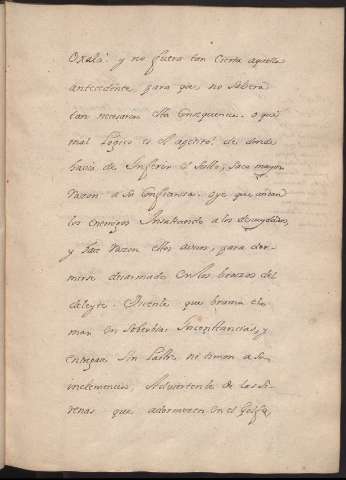 Oxala! y no fuera tan cierta aquella
antecedente, para que no saliera
tan necesaria esta consequencia. o que
mal Logico es el apetito! de donde
havia de Inferir el susto, saca mayor
razon a su confianza. oye que andan
los enemigos Insultando a los descuydados,
y hace razon ellos avisos, para dor-
mirse desarmado en los brazos del
deleyte. Siente que brama el
mar en soberbias Inconstancias, y
entregase sin lastre, ni timon a sus
inclemencias, Adviertende de las si-
renas que adormecen en el Golfo,